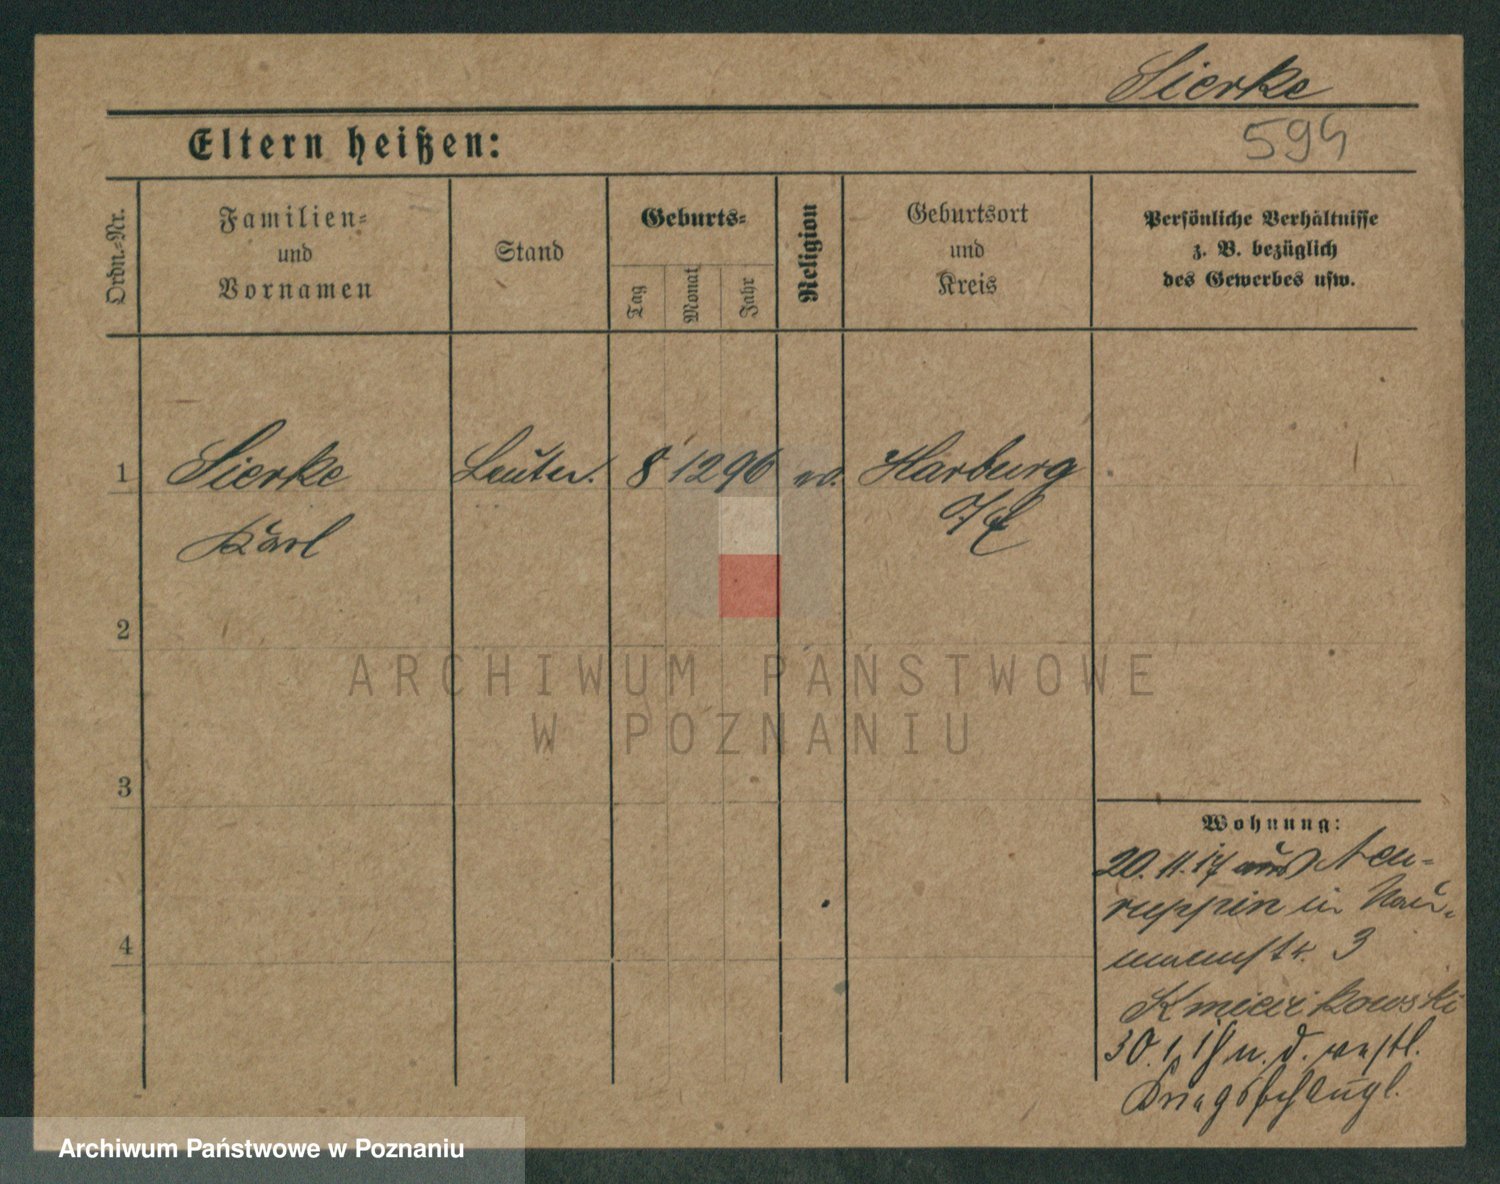 Sierke
594
Eltern heißen:
Ordn.-Nr.
Familien-
und
Vornamen
Stand
Geburts-
Tag
Monat
Jahr
Religion
Geburtsort
und
Kreis
Persönliche Verhältnisse
z. B. bezüglich
des Gewerbes usw.
1
Sierke
Karl
Leutn.
8 12 96
ev.
Harburg
a/E
2
3
4
Wohnung:
20.11.17 aus Neu-
ruppin in Nau-
mannstr. 3
30.1.18 n. d. westl.
ARCHIWUM PAŃSTWOWE
W POZNANIU
Archiwum Państwowe w Poznaniu